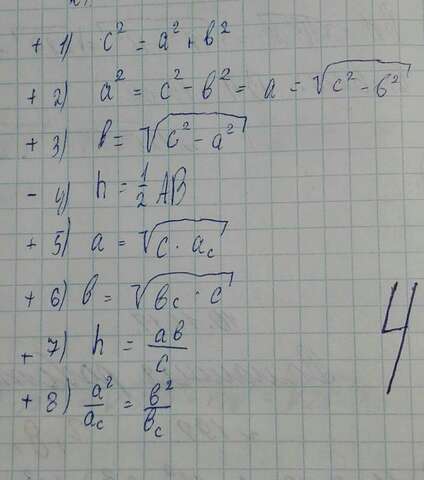 + 1) c² = a² + b²
+ 2) a² = c² - b² = a = √(c² - b²)
+ 3) b = √(c² - a²)
- 4) h = 1/2 AB
+ 5) a = √(c · a_c)
+ 6) b = √(b_c · c)
+ 7) h = ab/c
+ 8) a²/a_c = b²/b_c
4